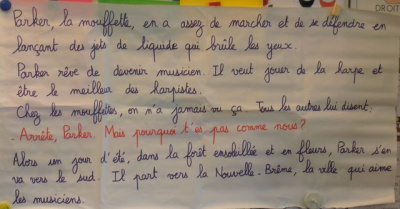 DROIT
Parker, la mouffette, en a assez de marcher et de se défendre en
lançant des jets de liquide qui brûle les yeux.
Parker rêve de devenir musicien. Il veut jouer de la harpe et
être le meilleur des harpistes.
Chez les mouffettes, on n'a jamais vu ça. Tous les autres lui disent:
Arrête, Parker. Mais pourquoi t'es pas comme nous?
Alors un jour d'été, dans la forêt ensoleillée et en fleurs, Parker s'en
va vers le sud. Il part vers la Nouvelle-Brême, la ville qui aime
les musiciens.